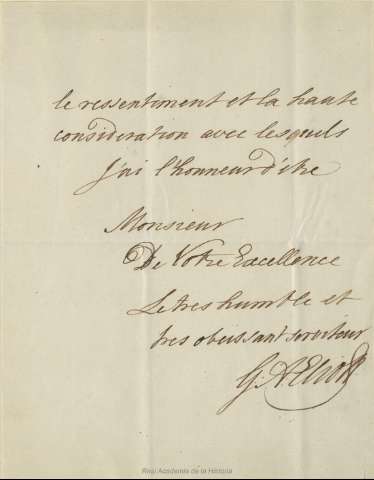 le ressentiment et la haute
consideration avec lesquels
j'ai l'honneur d'etre
Monsieur
De Votre Excellence
Le tres humble et
tres obeissant serviteur
G A Eliott
Real Academia de la Historia